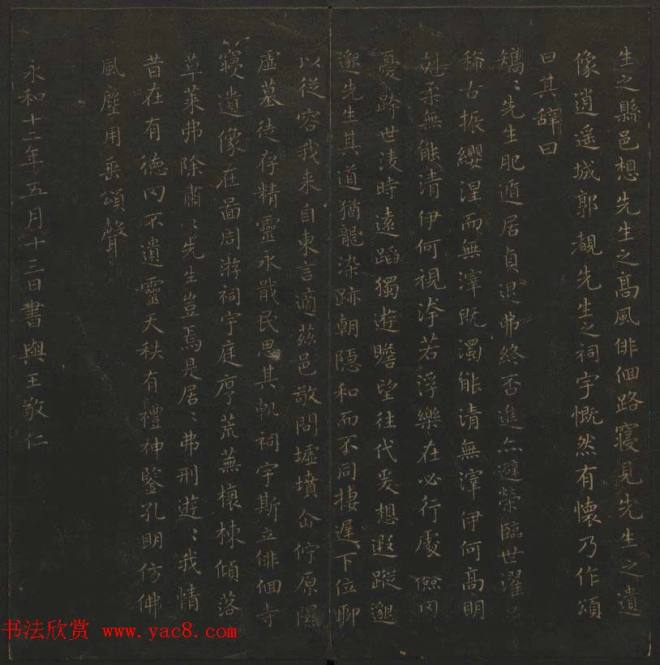 生之縣邑想先生之高風俳佪路寢見先生之遺
像逍遥城郭覩先生之祠宇慨然有懷乃作頌
曰其辭曰
矯：先生肥遁居貞退弗終否進亦避榮臨世濯
稀古振纓涅而無滓既濁能清無滓伊何高明
尅柔無能清伊何視汙若浮樂在必行處儉罔
憂跨世凌時遠蹈獨遊瞻望往代爰想遐蹤邈
邈先生其道猶龍染跡朝隠和而不同棲遲下位聊
以從容我来自東言適茲邑敬問墟墳企佇原隰
虚墓徒存精靈永戢民思其軌祠宇斯立俳佪寺
寢遺像在啚周游祠宇庭序荒蕪榱棟傾落
草莱弗除肅：先生豈焉是居：弗刑遊：我情
昔在有德罔不遺靈天秩有禮神鑒孔明彷佛
風塵用垂頌聲
永和十二年五月十三日書與王敬仁
书法欣赏 www.yac8.com